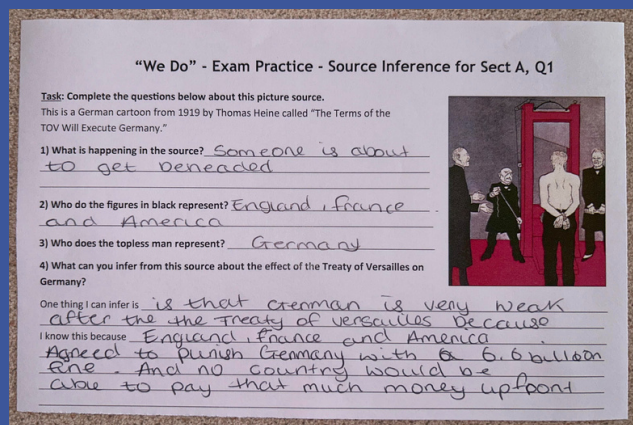 “We Do” - Exam Practice - Source Inference for Sect A, Q1
Task: Complete the questions below about this picture source.
This is a German cartoon from 1919 by Thomas Heine called “The Terms of the
TOV Will Execute Germany.”
1) What is happening in the source? Someone is about
to get beneaded
2) Who do the figures in black represent? England, france
and America
3) Who does the topless man represent? Germany
4) What can you infer from this source about the effect of the Treaty of Versailles on
Germany?
One thing I can infer is is that German is very weak
after the the Treaty of versailles because
I know this because England, france and America
Agreed to punish Germany with a 6.6 billoon
fine. And no country would be
able to pay that much money upfoont